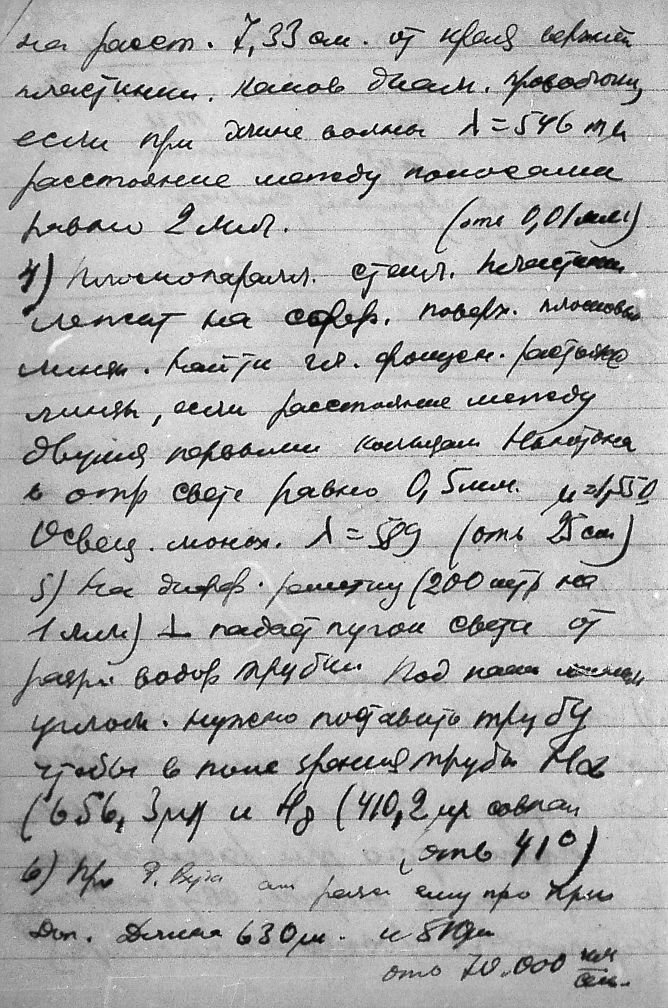 на расст. 7,33 см. от края верхней
пластинки. Каков диам. проволочки,
если при длине волны λ = 546 mμ
расстояние между полосами
равно 2 мм. (отв 0,01 мм)
4) Плоскопаралл. стекл. пластинка
лежит на сфер. поверх. плосковып
линзы. Найти гл. фокусн. расстояние
линзы, если расстояние между
двумя первыми кольцами Ньютона
в отр свете равно 0,5 мм. μ=1,550
Освещ. монох. λ = 589 (отв 25 см)
5) На дифр. решетку (200 штр на
1 мм) ⊥ падает пучок света от
разр. водор трубки Под каким
углом. нужно поставить трубу
чтобы в поле зрения трубы Hα
(656,3 μμ и Hδ (410,2 μμ совпал
(отв 41°)
6) Про
Доп. Длина 630 μμ. и
отв 70.000 км/сек.